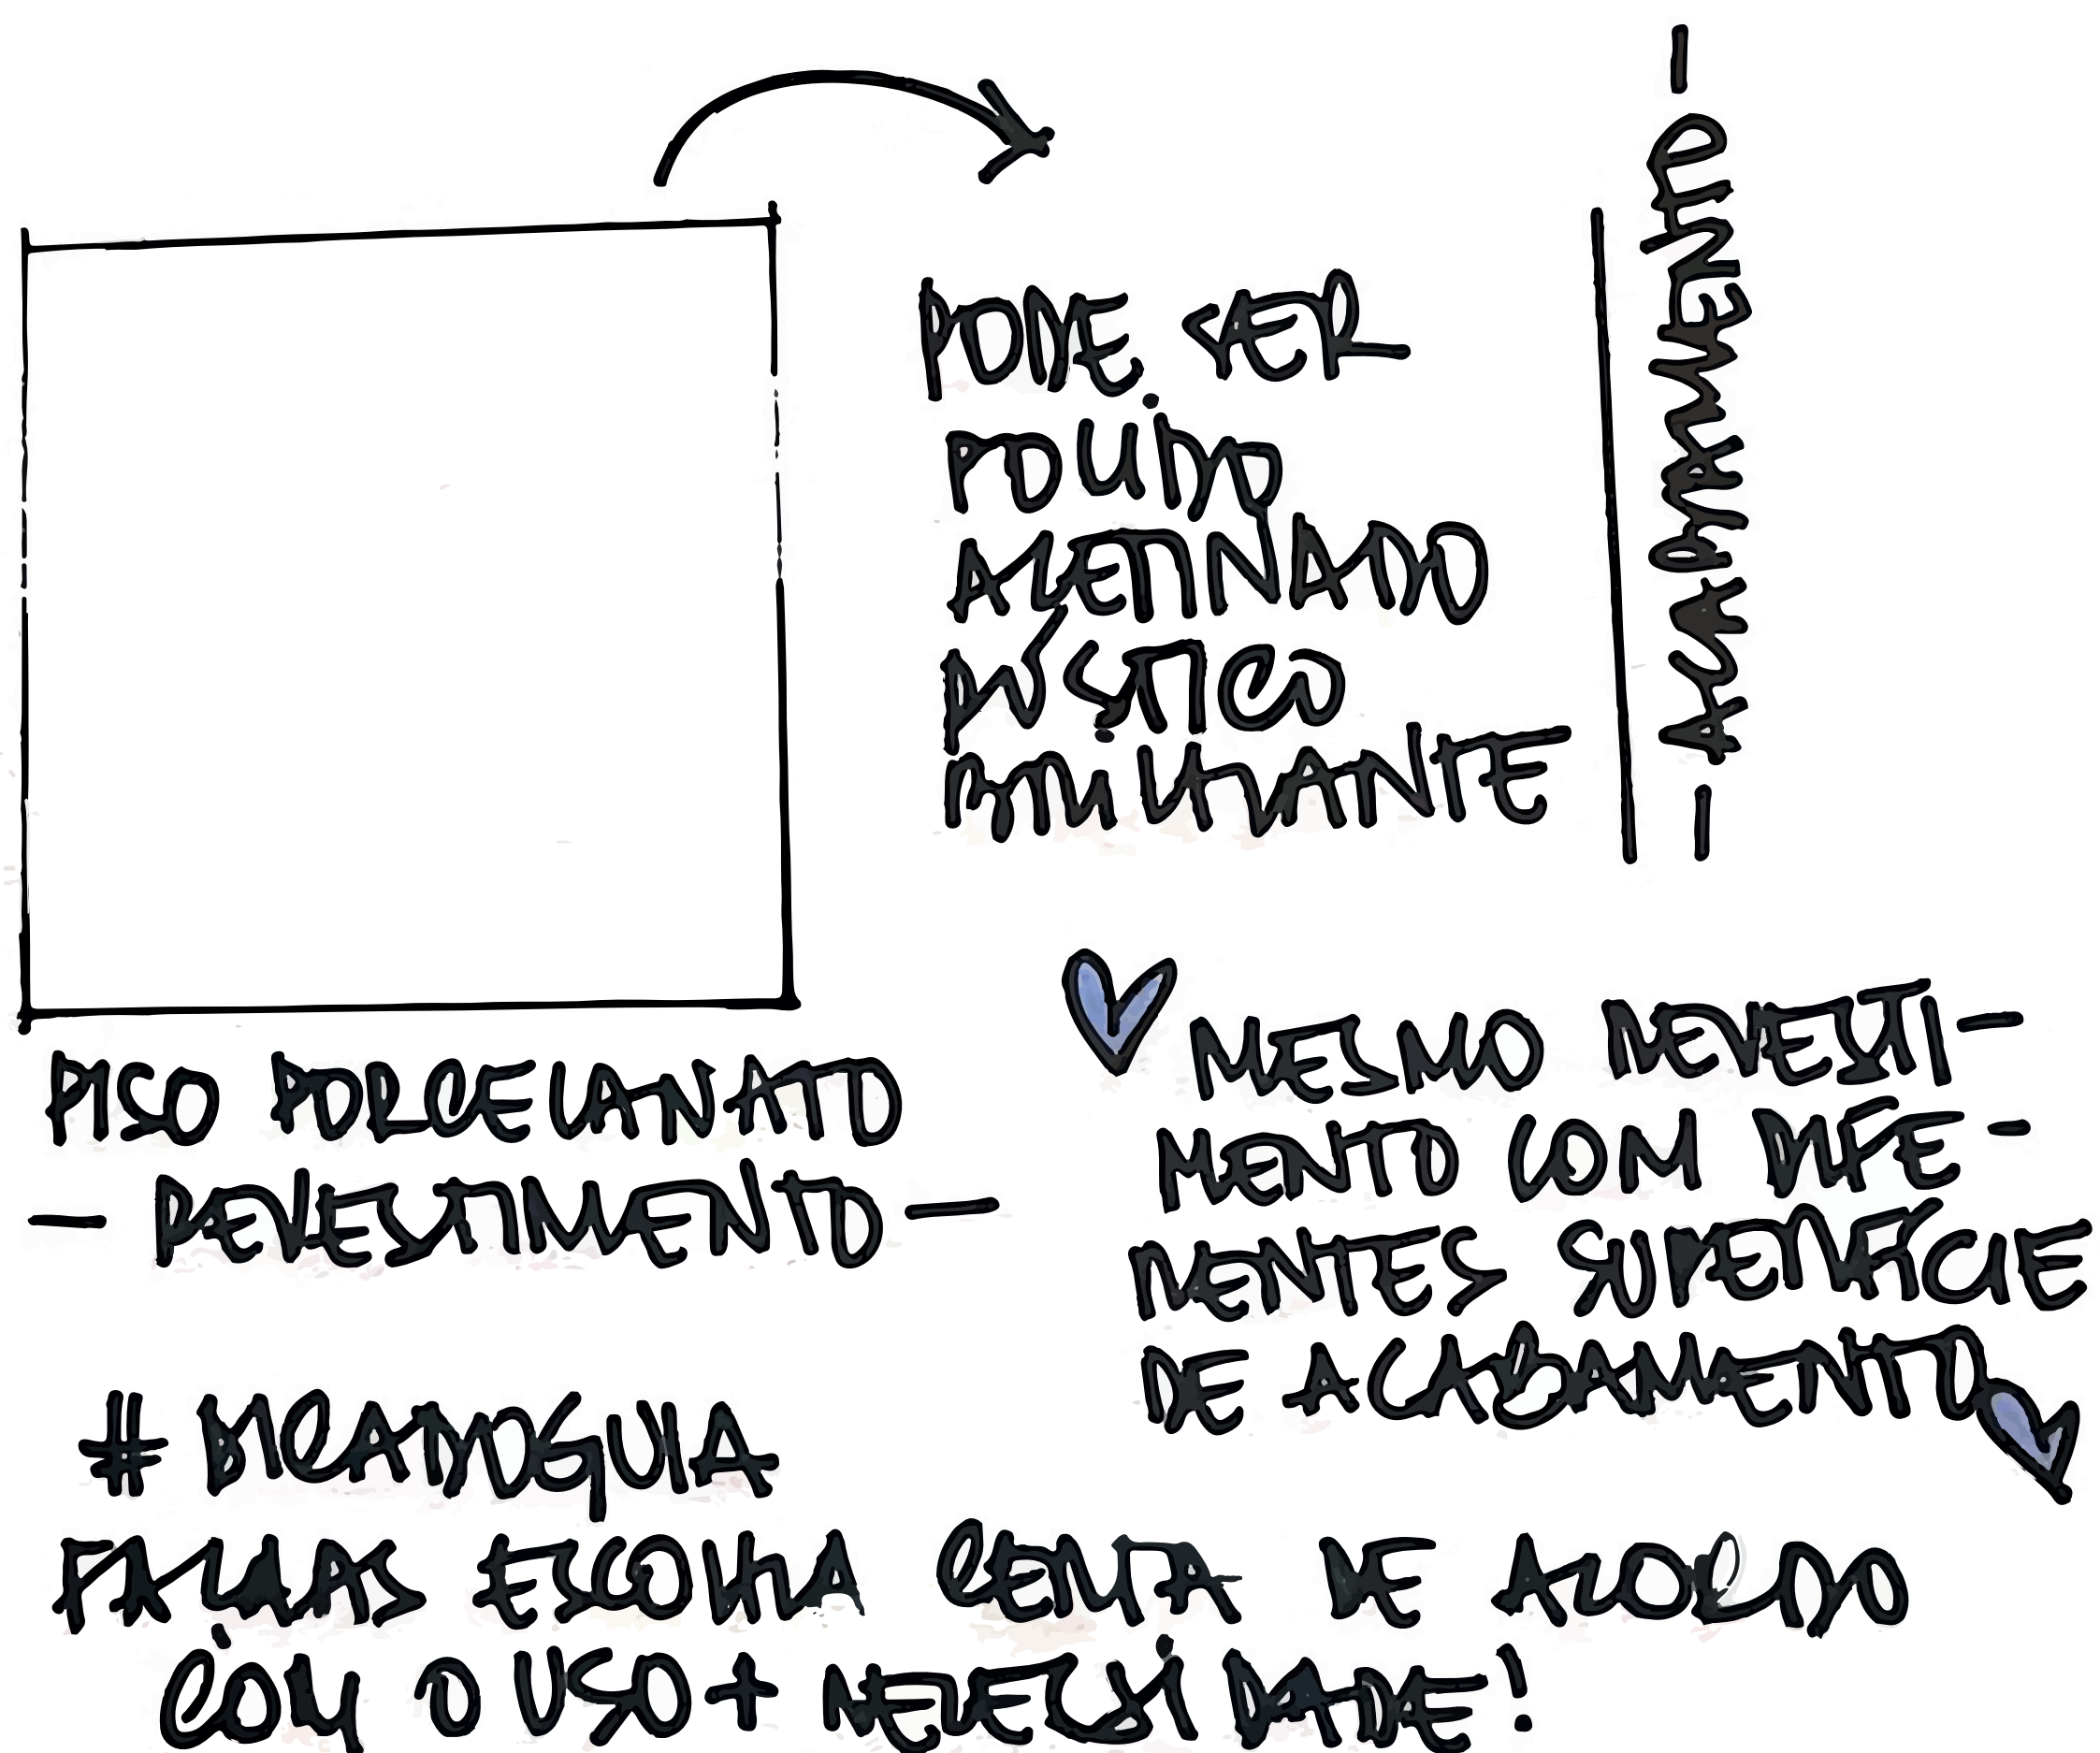 PODE SER
POLIDO
ACETINADO
RÚSTICO
BRILHANTE
- ACABAMENTO -
PISO PORCELANATO
- REVESTIMENTO -
MESMO REVESTI-
MENTO COM DIFE-
RENTES SUPERFÍCIE
DE ACABAMENTO
# DICADOGUIA
FAÇA AS ESCOLHA CERTA DE ACORDO
COM O USO + NECESSIDADE!